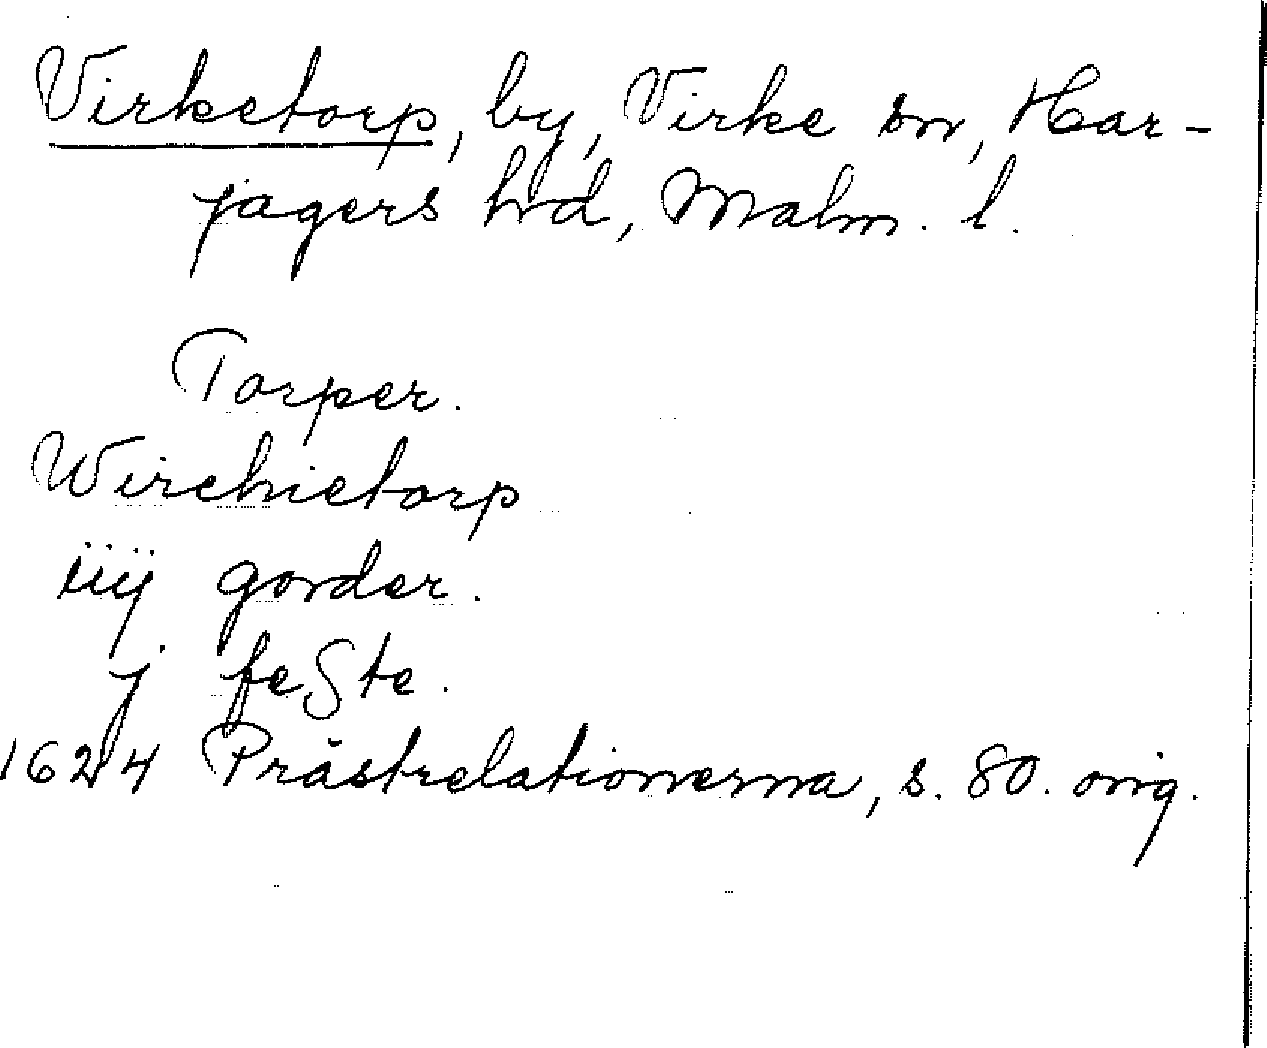 Virketorp, by, Virke sn, Har-
jagers hrd, Malm. l.
Torper.
Wirchietorp
iiij gorder.
j feste.
1624 Prästrelationerna, s. 80. orig.